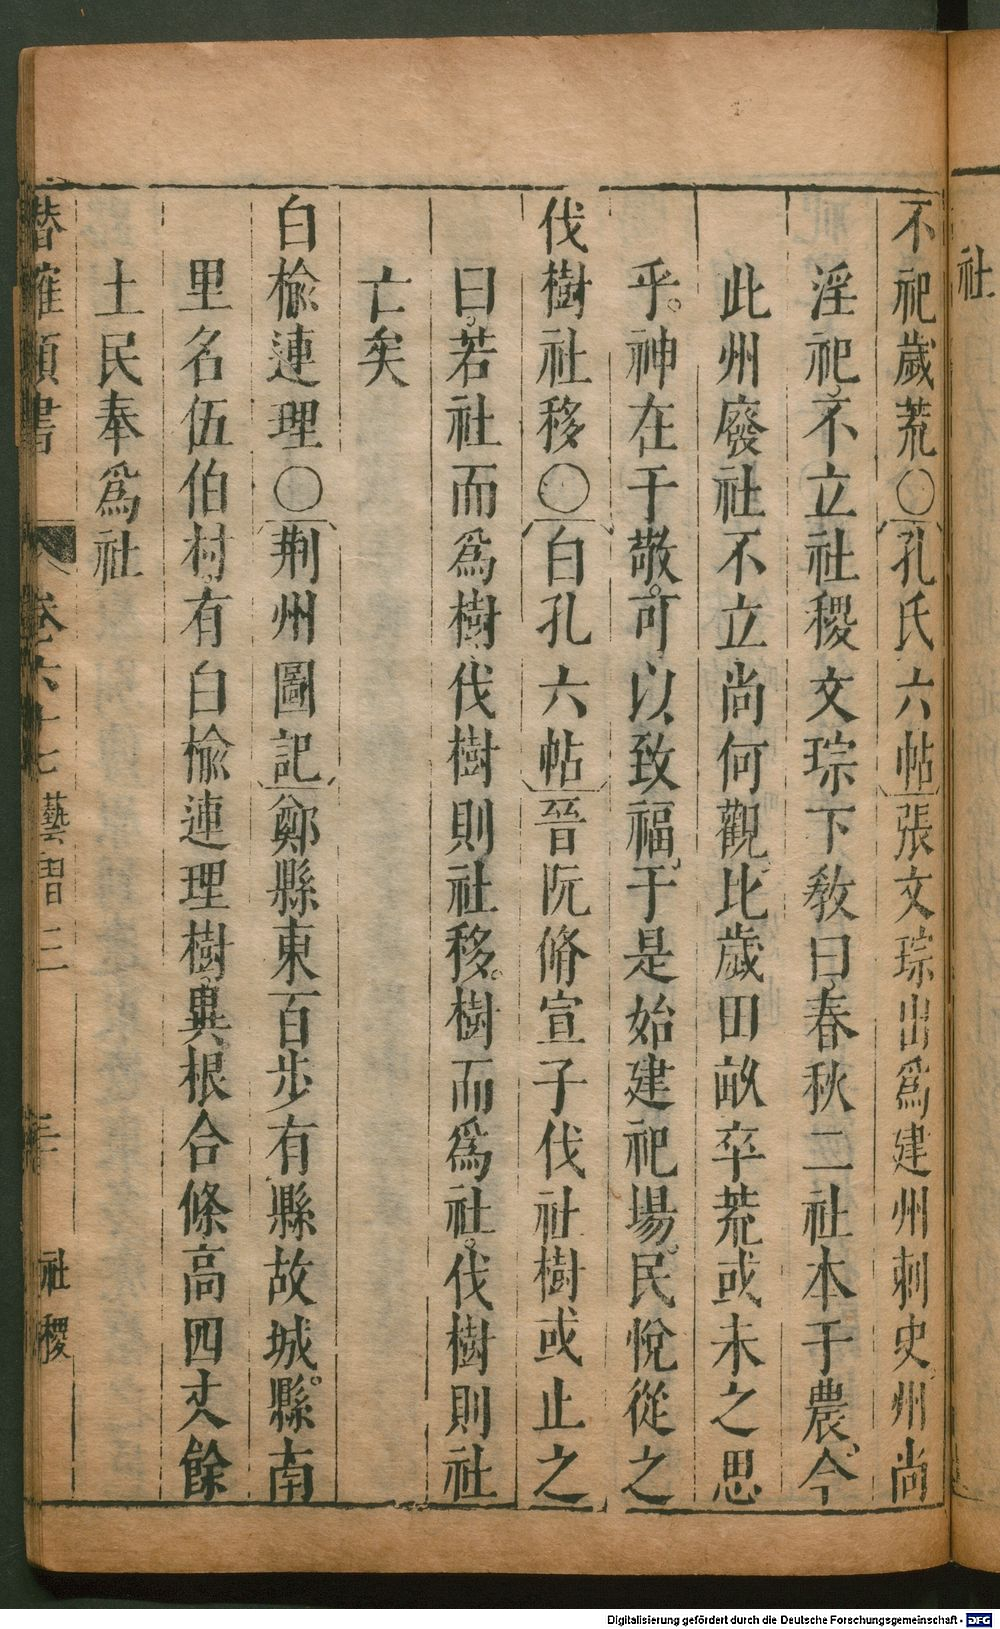 社
不祀歲荒〇孔氏六帖張文琮出爲建州刺史州尚
淫祀不立社稷文琮下敎曰春秋二社本于農今
此州廢社不立尚何觀比歲田畝卒荒或未之思
乎。神在于敬。可以致福。于是始建祀場。民悅從之
伐樹社移〇白孔六帖晉阮脩宣子伐社樹或止之
曰。若社而爲樹。伐樹則社移。樹而爲社。伐樹則社
亡矣
白楡連理〇荆州圖記鄭縣東百步有縣故城。縣南
里名伍伯村。有白楡連理樹。異根合條高四丈餘
土民奉爲社
潛確類書 卷六十七 藝習二 三十 社稷
Digitalisierung gefördert durch die Deutsche Forschungsgemeinschaft - DFG